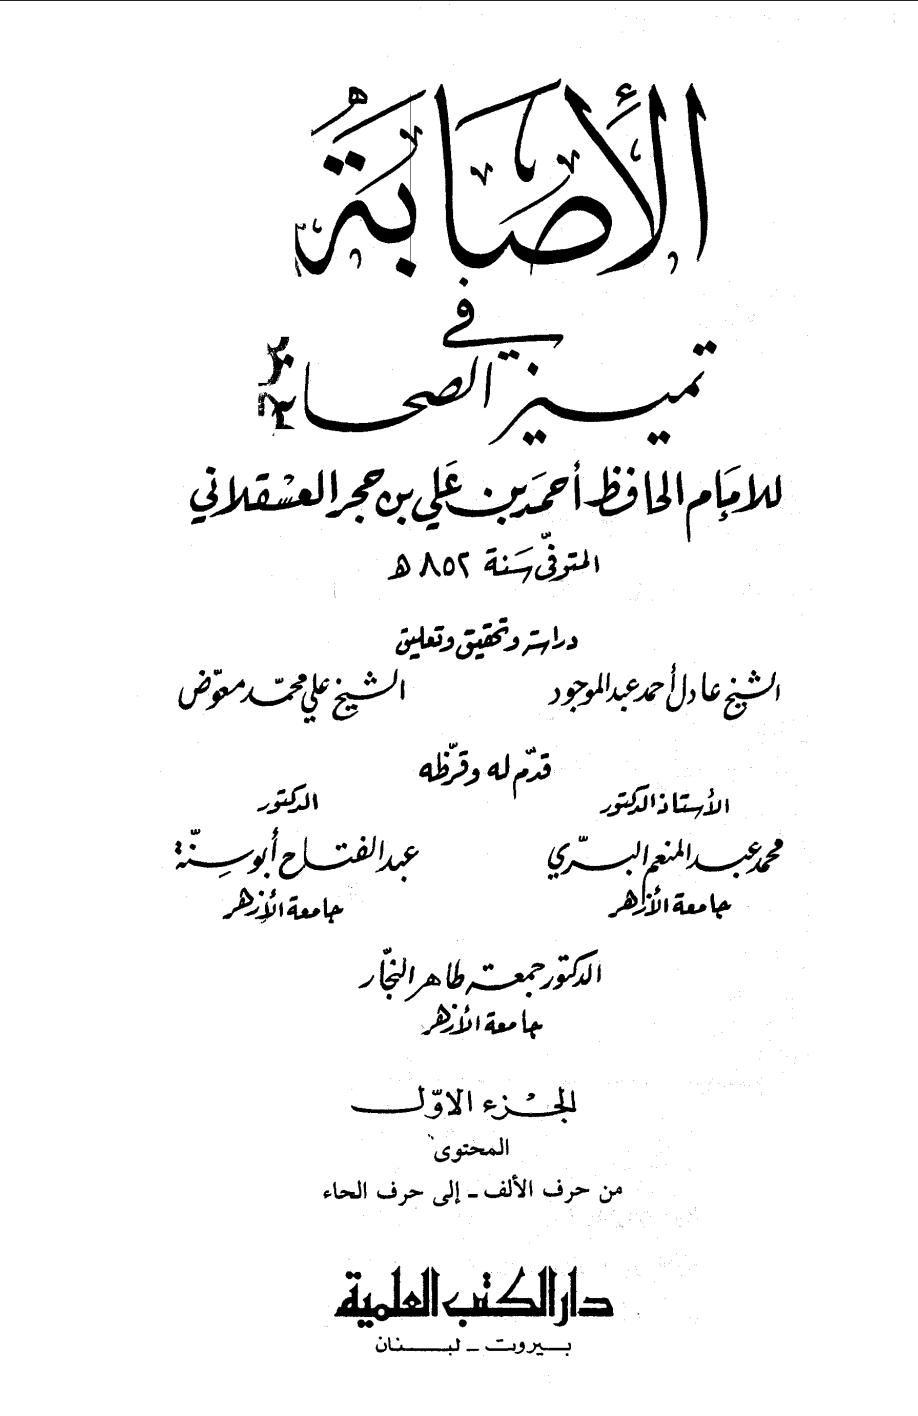 الأَصَابَةُ
في
تمييز الصحابة
للإمَام الحافظ أحمَد بن عَلي بن حجر العسْقلاني
المتوفّى سَنة ٨٥٢ ه
دراسة وتحقيق وتعليق
الشيخ عادل أحمد عبد الموجود
الشيخ علي محمّد معوّض
قدّم له وقرّظه
الأستاذ الدكتور
محمد عبد المنعم البرّي
جامعة الأزهر
الدكتور
عبد الفتاح أبو سنّة
جامعة الأزهر
الدكتور جمعة طاهر النجّار
جامعة الأزهر
الجزء الاوّل
المحتوى
من حرف الألف - إلى حرف الحاء
دار الكتب العلمية
بيروت - لبنان